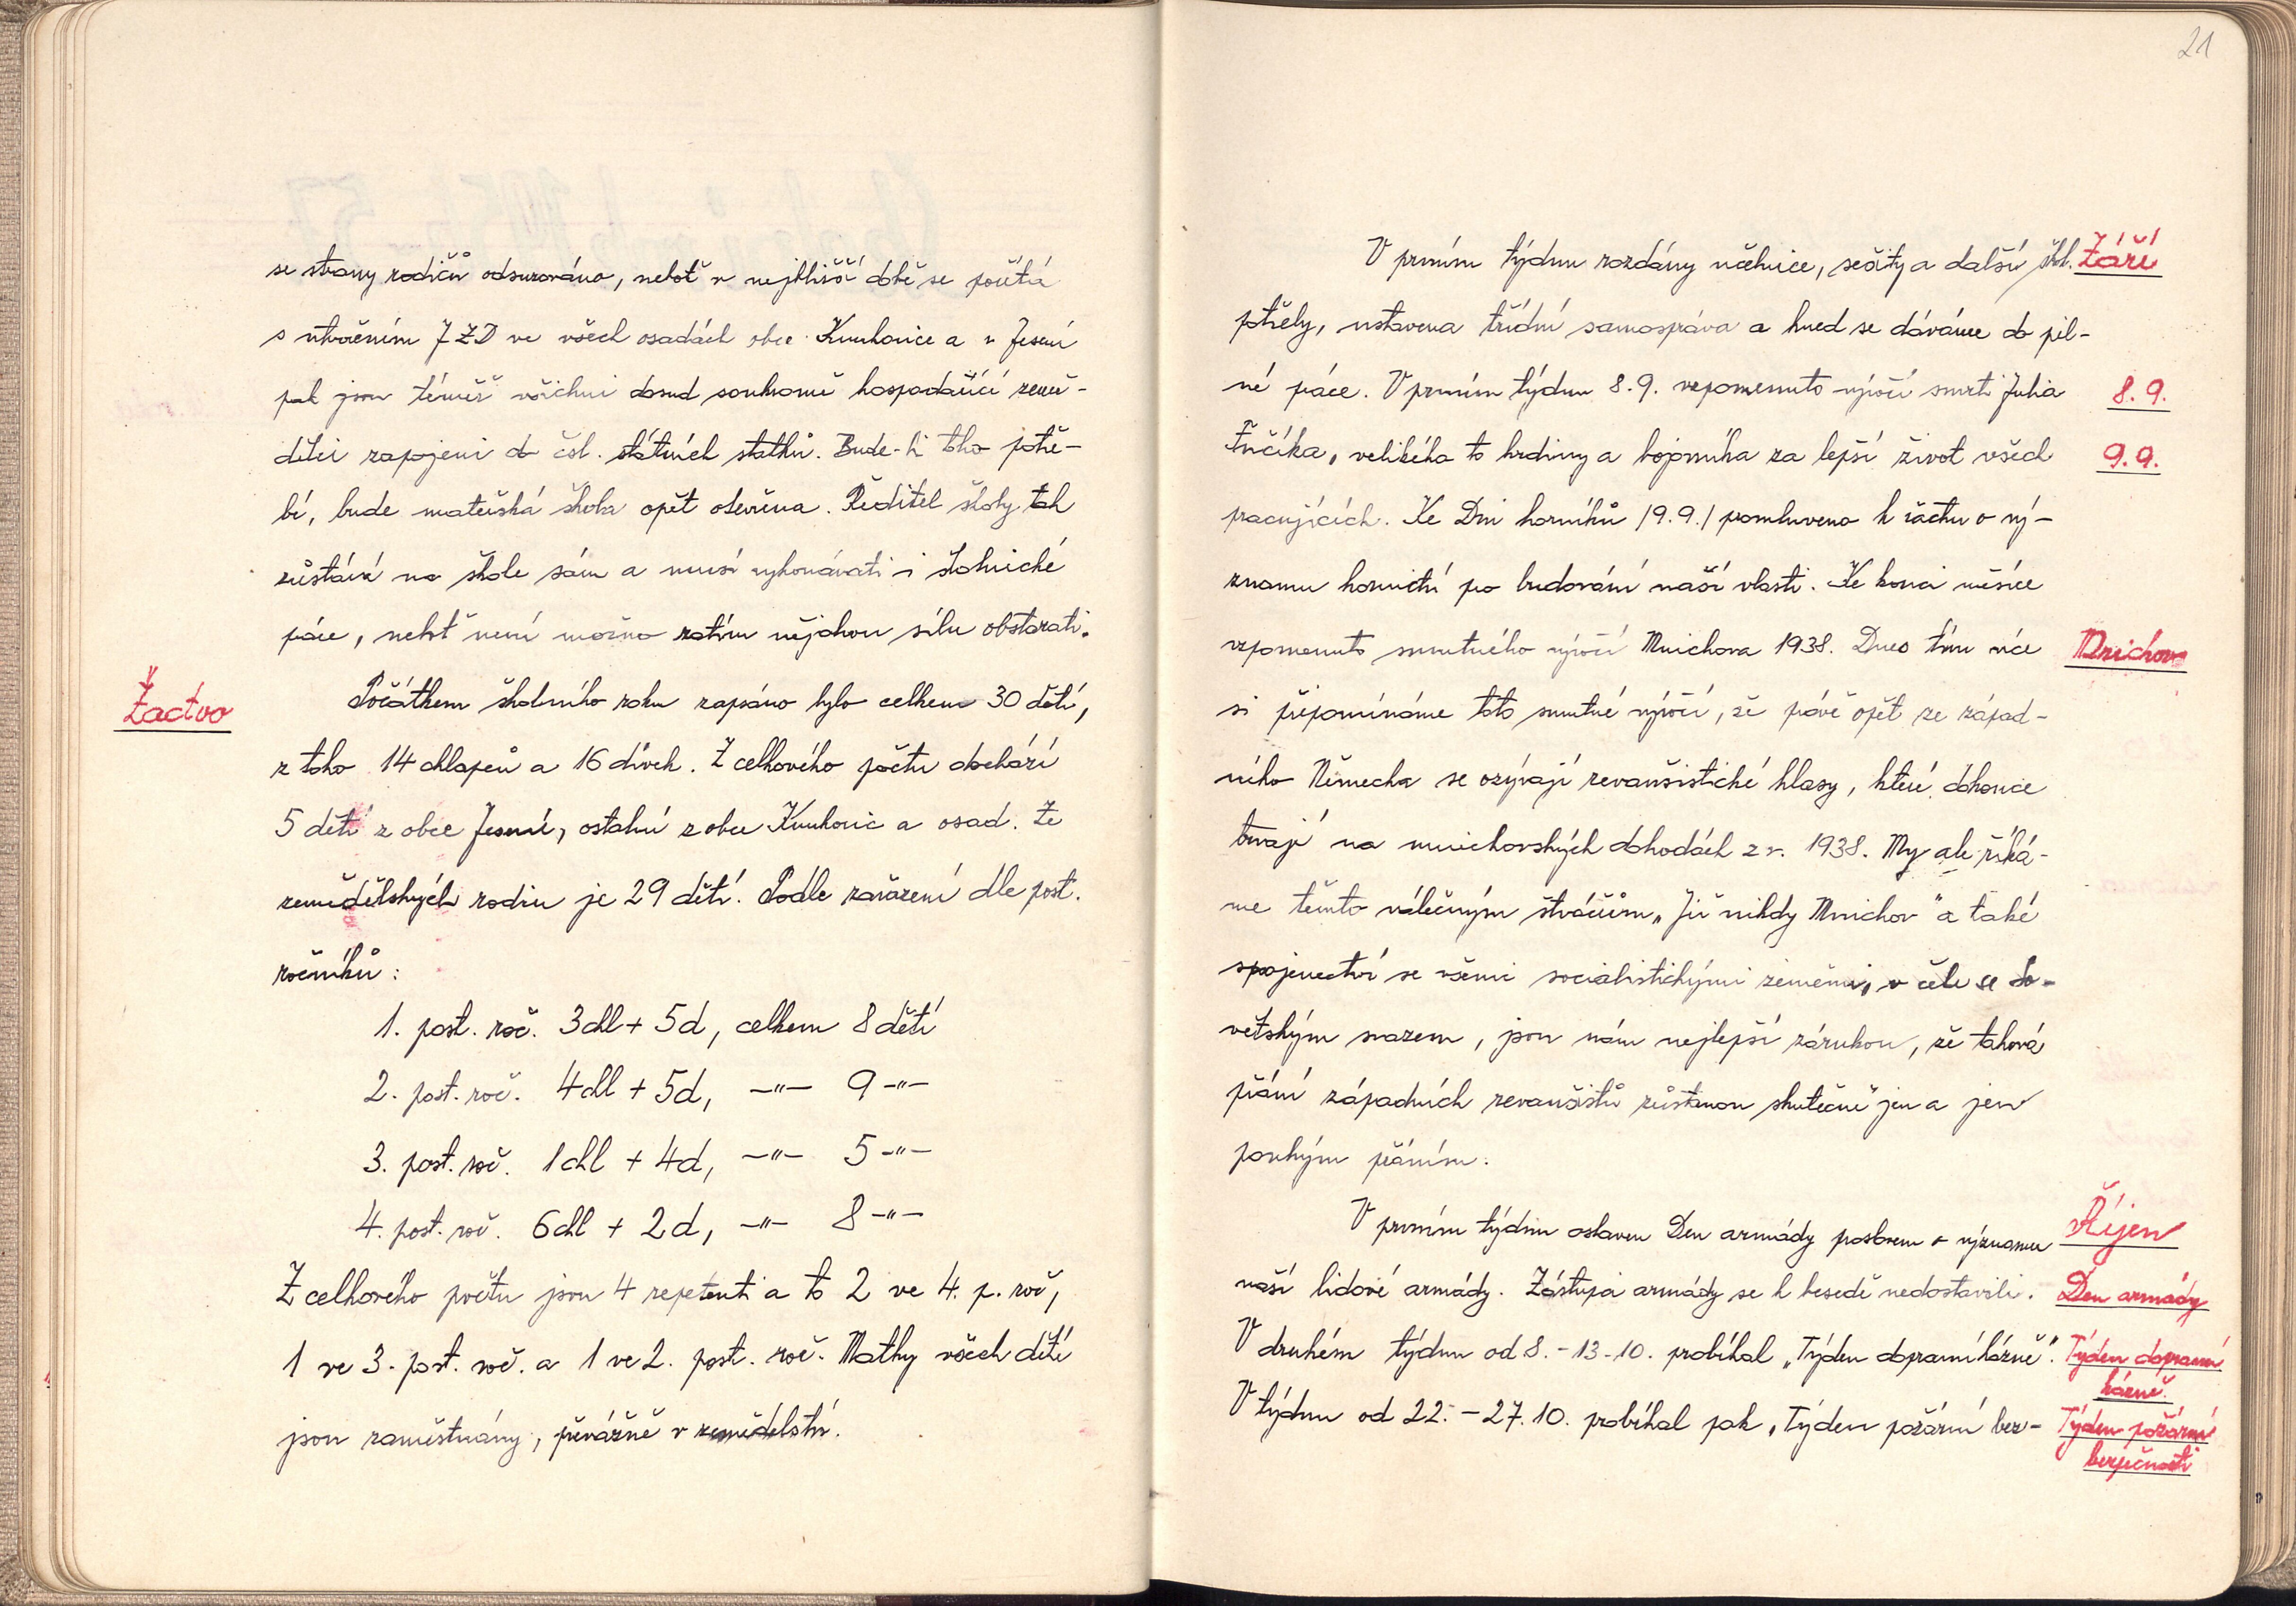 se strany rodičů odsunováno, neboť v nejbližší době se počítá
s utvořením JZD ve všech osadách obce Kunkovice a v Jesení
pak jsou téměř všichni dosud soukromě hospodařící země-
dělci zapojeni do čsl. státních statků. Bude-li toho potře-
bí, bude mateřská škola opět otevřena. Ředitel školy tak
zůstává na škole sám a musí vykonávati i školnické
práce, neboť není možno zatím nějakou sílu obstarati.
Žactvo
Počátkem školního roku zapsáno bylo celkem 30 dětí,
z toho 14 chlapců a 16 dívek. Z celkového počtu dochází
5 dětí z obce Jesení, ostatní z obce Kunkovic a osad. Ze
zemědělských rodin je 29 dětí. Podle zařazení dle post.
ročníků:
1. post. roč. 3chl + 5d, celkem 8 dětí
2. post. roč. 4chl + 5d, —"— 9 —"—
3. post. roč. 1chl + 4d, —"— 5 —"—
4. post. roč. 6chl + 2d, —"— 8 —"—
Z celkového počtu jsou 4 repetenti a to 2 ve 4. p. roč,
1 ve 3. post. roč. a 1 ve 2. post. roč. Matky všech dětí
jsou zaměstnány, převážně v zemědělství.
21
V prvním týdnu rozdány učebnice, sešity a další škol. Září
potřeby, ustavena třídní samospráva a hned se dáváme do pil-
né práce. V prvním týdnu 8.9. vzpomenuto výročí smrti Julia 8.9.
Fučíka, velikého to hrdiny a bojovníka za lepší život všech 9.9.
pracujících. Ke Dni horníků /9.9./ promluveno k žactvu o vý-
znamu hornictví pro budování naší vlasti. Ke konci měsíce
vzpomenuto smutného výročí Mnichova 1938. Dnes tím více Mnichov
si připomínáme toto smutné výročí, že právě opět ze západ-
ního Německa se ozývají revanšistické hlasy, které dokonce
trvají na mnichovských dohodách z r. 1938. My ale říká-
me těmto válečným štváčům „Již nikdy Mnichov" a také
spojenectví se všemi socialistickými zeměmi, v čele se So-
větským svazem, jsou nám nejlepší zárukou, že taková
přání západních revanšistů zůstanou skutečně jen a jen
pouhým přáním.
V prvním týdnu oslaven Den armády poslovem o významu Říjen
naší lidové armády. Zástupci armády se k besedě nedostavili. Den armády
V druhém týdnu od 8.-13.10. probíhal „Týden dopravní kázně". Týden dopravní
kázně.
V týdnu od 22.-27.10. probíhal pak „Týden požární bez- Týden požární
bezpečnosti